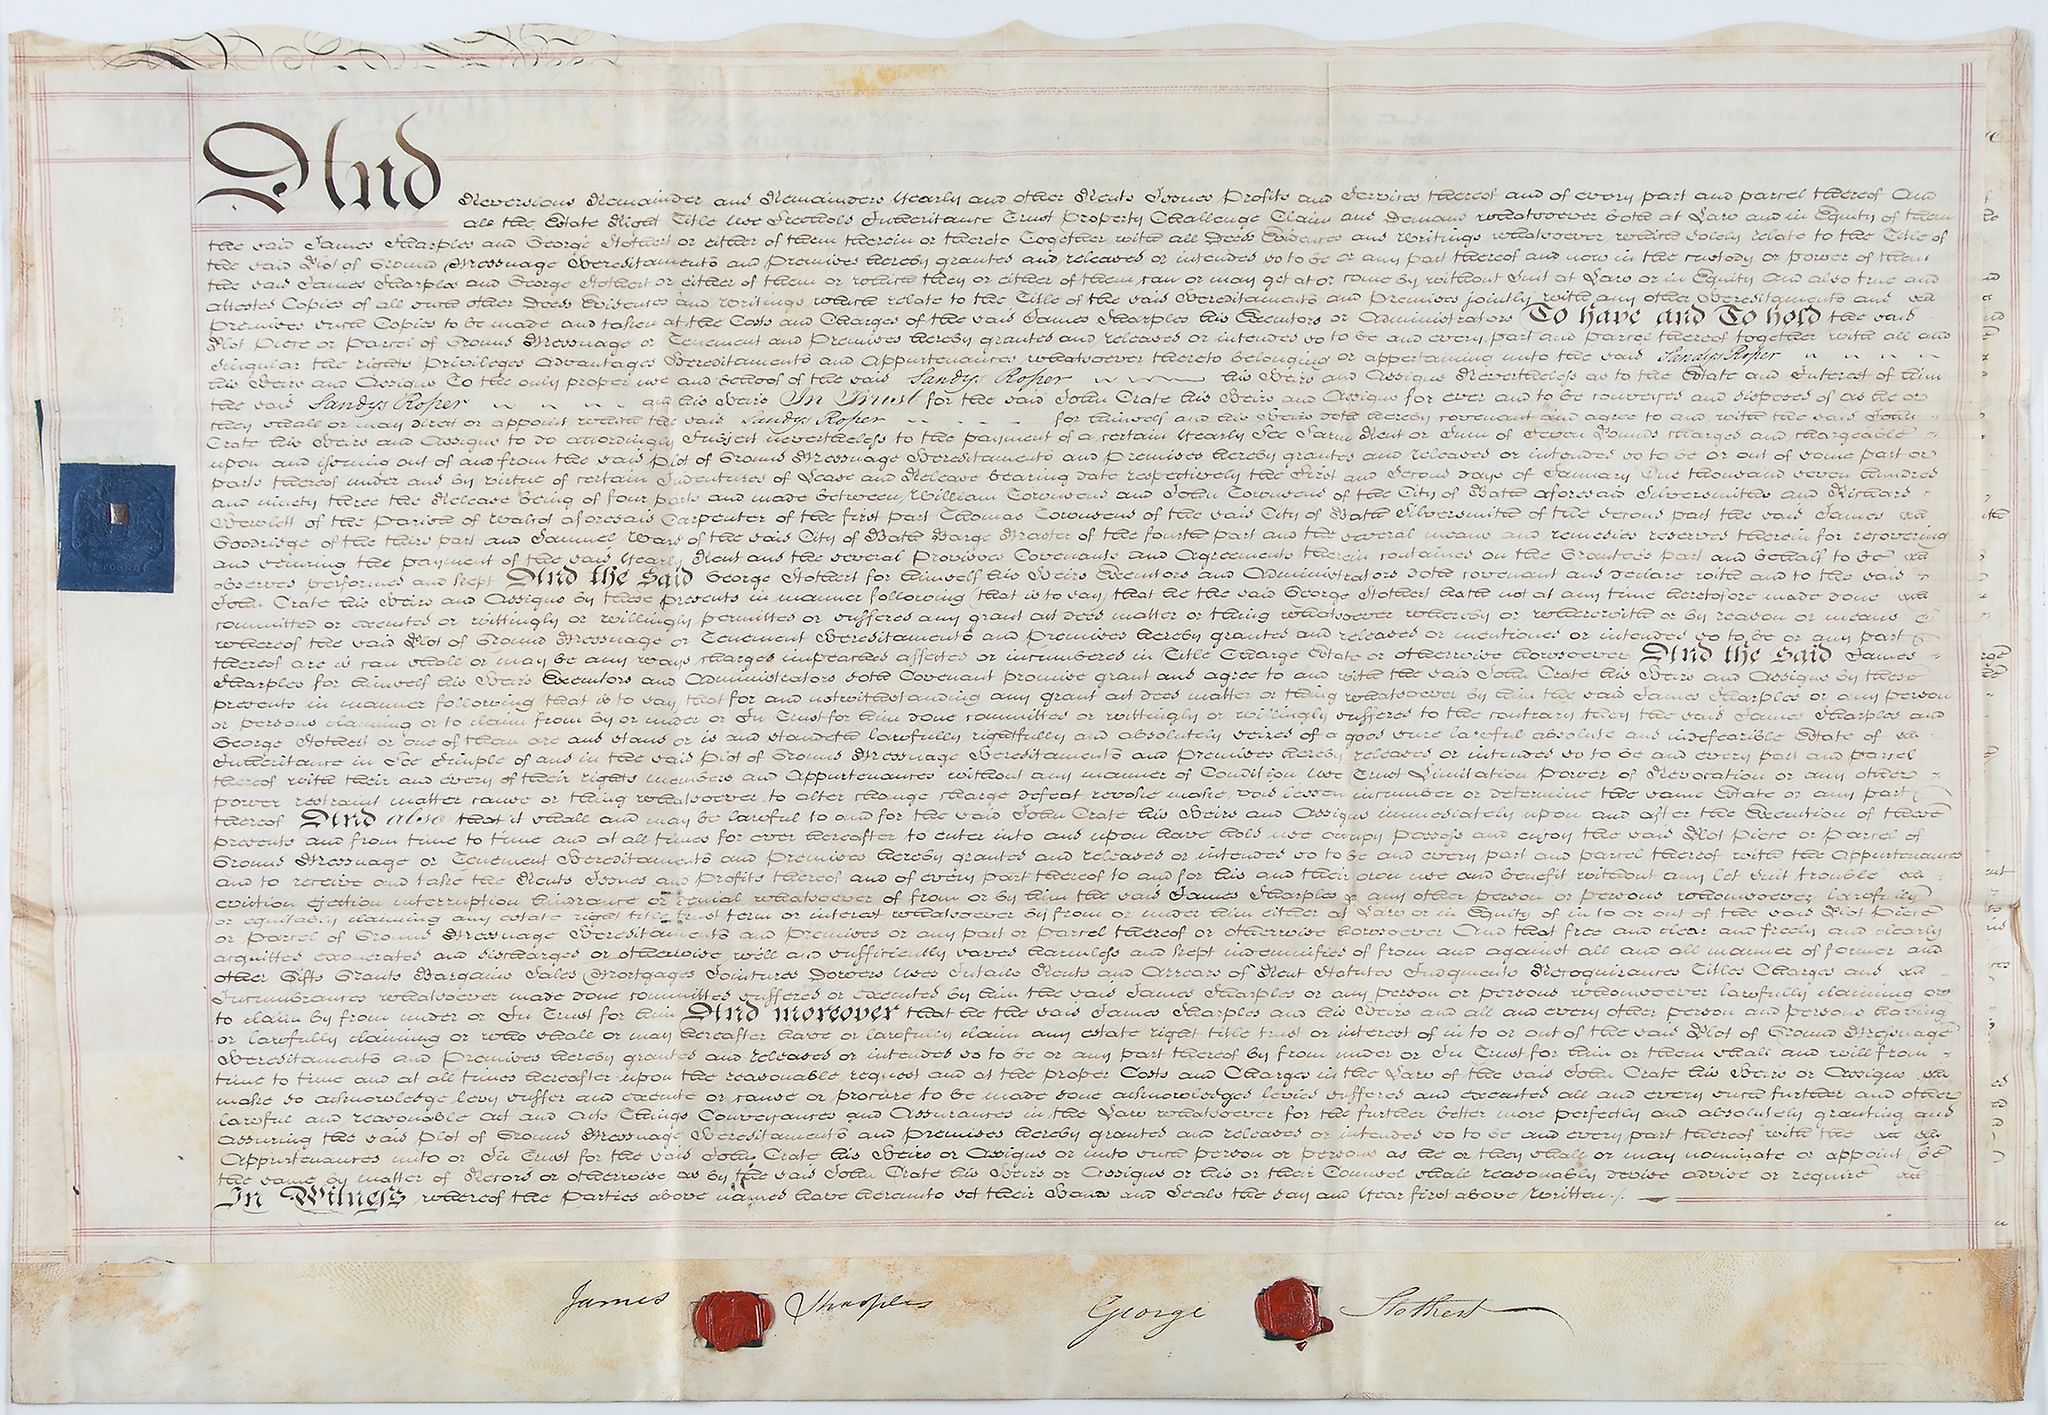 And Reversions Remainder and Remainders Yearly and other Rents Issues Profits and Services thereof and of every part and parcel thereof And
all the Estate Right Title Use Inheritance Trust Property Challenge Claim and Demand whatsoever both at Law and in Equity of them
the said James Sharples and George Stothert or either of them therein or thereto Together with all Deeds Evidences and Writings whatsoever which solely relate to the Title of
the said Plot of Ground Messuage Hereditaments and Premises hereby granted and released or intended so to be or any part thereof and now in the custody or power of them
the said James Sharples and George Stothert or either of them or which they or either of them can or may get at or come by without Suit at Law or in Equity And also true and
attested Copies of all such other Deeds Evidences and Writings which relate to the Title of the said Hereditaments and Premises jointly with any other Hereditaments and
Premises such Copies to be made and taken at the Costs and Charges of the said James Sharples his Executors or Administrators To have and To hold the said
Plot Piece or Parcel of Ground Messuage or Tenement and Premises hereby granted and released or intended so to be and every part and parcel thereof together with all and
Singular the rights Privileges Advantages Hereditaments and Appurtenances whatsoever thereto belonging or appertaining unto the said Sandys Roper
his Heirs and Assigns To the only proper use and behoof of the said Sandys Roper his Heirs and Assigns Nevertheless as to the Estate and Interest of him
the said Sandys Roper and his Heirs In Trust for the said John Crate his Heirs and Assigns for ever and to be conveyed and disposed of as he or
they shall or may direct or appoint which the said Sandys Roper for himself and his Heirs doth hereby covenant and agree to and with the said John
Crate his Heirs and Assigns to do accordingly Subject nevertheless to the payment of a certain Yearly Fee Farm Rent or Sum of Seven Pounds charged and chargeable
upon and issuing out of and from the said Plot of Ground Messuage Hereditaments and Premises hereby granted and released or intended so to be or out of some part or
parts thereof under and by virtue of certain Indentures of Lease and Release bearing date respectively the First and Second days of January One thousand seven hundred
and ninety three the Release being of four parts and made between William Townsend and John Townsend of the City of Bath aforesaid Silversmiths and Richard
Hewlett of the Parish of Walcot aforesaid Carpenter of the first part Thomas Townsend of the said City of Bath Silversmith of the second part the said James
Goodridge of the third part and Samuel Ward of the said City of Bath Barge Master of the fourth part and the several means and remedies reserved therein for recovering
and securing the payment of the said Yearly Rent and the several Provisoes Covenants and Agreements therein contained on the Grantees part and behalf to be
observed performed and kept And the said George Stothert for himself his Heirs Executors and Administrators doth covenant and declare with and to the said
John Crate his Heirs and Assigns by these presents in manner following (that is to say that he the said George Stothert hath not at any time heretofore made done
committed or executed or wittingly or willingly permitted or suffered any grant act deed matter or thing whatsoever whereby or wherewith or by reason or means
whereof the said Plot of Ground Messuage or Tenement Hereditaments and Premises hereby granted and released or mentioned or intended so to be or any part
thereof are is can shall or may be any ways charged impeached affected or incumbered in Title Charge Estate or otherwise howsoever And the said James
Sharples for himself his Heirs Executors and Administrators doth Covenant promise grant and agree to and with the said John Crate his Heirs and Assigns by these
presents in manner following that is to say that for and notwithstanding any grant act deed matter or thing whatsoever by him the said James Sharples or any person
or persons claiming or to claim from by or under or In Trust for him done committed or wittingly or willingly suffered to the contrary they the said James Sharples and
George Stothert or one of them are and stand or is and standeth lawfully rightfully and absolutely seized of a good sure lawful absolute and indefeasible Estate of
Inheritance in Fee Simple of and in the said Plot of Ground Messuage Hereditaments and Premises hereby released or intended so to be and every part and parcel
thereof with their and every of their rights members and Appurtenances without any manner of Condition Use Trust Limitation power of Revocation or any other
power restraint matter cause or thing whatsoever to alter change charge defeat revoke make void lessen incumber or determine the same Estate or any part
thereof And also that it shall and may be lawful to and for the said John Crate his Heirs and Assigns immediately upon and after the Execution of these
presents and from time to time and at all times for ever hereafter to enter into and upon have hold use occupy possess and enjoy the said Plot Piece or Parcel of
Ground Messuage or Tenement Hereditaments and Premises hereby granted and released or intended so to be and every part and parcel thereof with the Appurtenances
and to receive and take the Rents Issues and Profits thereof and of every part thereof to and for his and their own use and benefit without any let suit trouble
eviction ejection interruption hinderance or denial whatsoever of from or by him the said James Sharples or any other person or persons whomsoever lawfully
or equitably claiming any estate right title trust term or interest whatsoever by from or under him either at Law or in Equity of in to or out of the said Plot Piece
or Parcel of Ground Messuage Hereditaments and Premises or any part or parcel thereof or otherwise howsoever And that free and clear and freely and clearly
acquitted exonerated and discharged or otherwise well and sufficiently saved harmless and kept indemnified of from and against all and all manner of former and
other Gifts Grants Bargains Sales Mortgages Jointures Dowers Uses Intails Rents and Arrears of Rent Statutes Judgments Recognizances Titles Charges and
Incumbrances whatsoever made done committed suffered or executed by him the said James Sharples or any person or persons whomsoever lawfully claiming or
to claim by from under or In Trust for him And moreover that he the said James Sharples and his Heirs and all and every other person and persons having
or lawfully claiming or who shall or may hereafter have or lawfully claim any estate right title trust or interest of in to or out of the said Plot of Ground Messuage
Hereditaments and Premises hereby granted and released or intended so to be or any part thereof by from under or In Trust for him or them shall and will from
time to time and at all times hereafter upon the reasonable request and at the proper Costs and Charges in the Law of the said John Crate his Heirs or Assigns
make do acknowledge levy suffer and execute or cause or procure to be made done acknowledged levied suffered and executed all and every such further and other
lawful and reasonable act and Acts Things Conveyances and Assurances in the Law whatsoever for the further better more perfectly and absolutely granting and
assuring the said Plot of Ground Messuage Hereditaments and Premises hereby granted and released or intended so to be and every part thereof with the
Appurtenances unto or In Trust for the said John Crate his Heirs or Assigns or unto such person or persons as he or they shall or may nominate or appoint be
the same by matter of Record or otherwise as by the said John Crate his Heirs or Assigns or his or their Counsel shall reasonably devise advise or require
In Witness whereof the Parties above named have hereunto set their Hands and Seals the day and Year first above written
James Sharples George Stothert